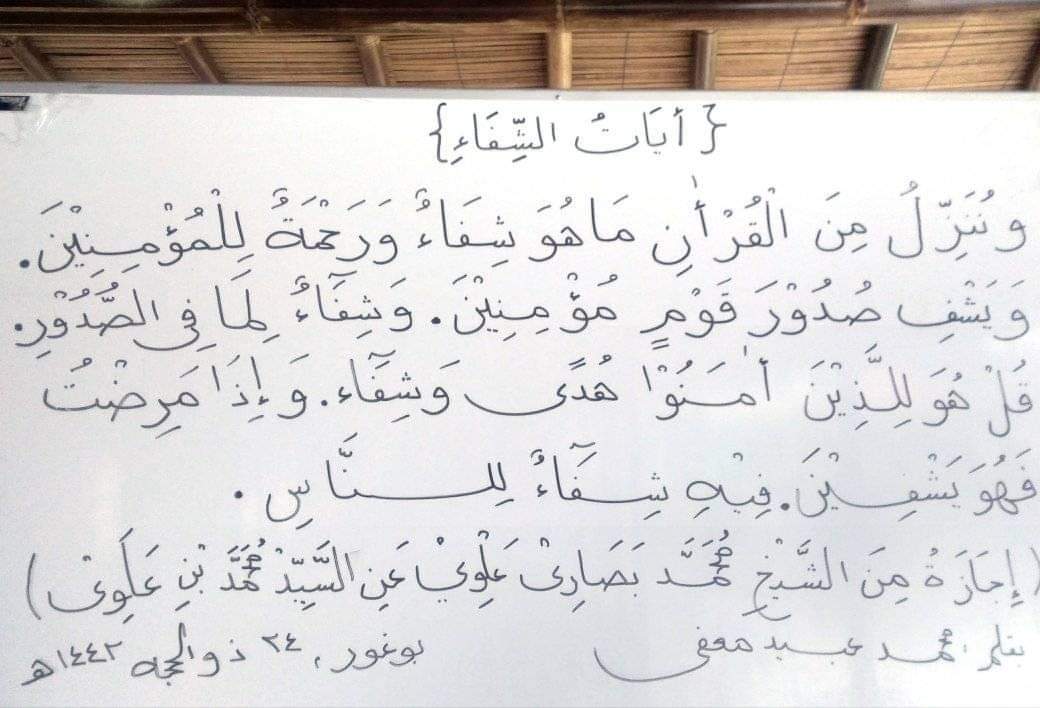 {أيَاتُ الشِّفَاءِ}
وَنُنَزِّلُ مِنَ الْقُرْأٰنِ مَاهُوَ شِفَاءٌ وَرَحْمَةٌ لِلْمُؤْمِنِيْنَ.
وَيَشْفِ صُدُوْرَ قَوْمٍ مُؤْمِنِيْنَ. وَشِفَآءٌ لِمَا فِى الصُّدُوْرِ.
قُلْ هُوَ لِلَّذِيْنَ أٰمَنُوْا هُدًى وَشِفَآء. وَإِذَا مَرِضْتُ
فَهُوَ يَشْفِيْنَ. فِيْهِ شِفَآءٌ لِلنَّاسِ.
(إِجَازَةُ مِنَ الشَّيْخِ مُحَمَّد بَصَارِىْ عَلْوِيْ عَنِ السَّيِّدْ مُحَمَّدْ بْنِ عَلَوِىْ)
بقلم، محمد عبيد معفى بوغور، ٢٤ ذوالحجه ١٤٤٢ه